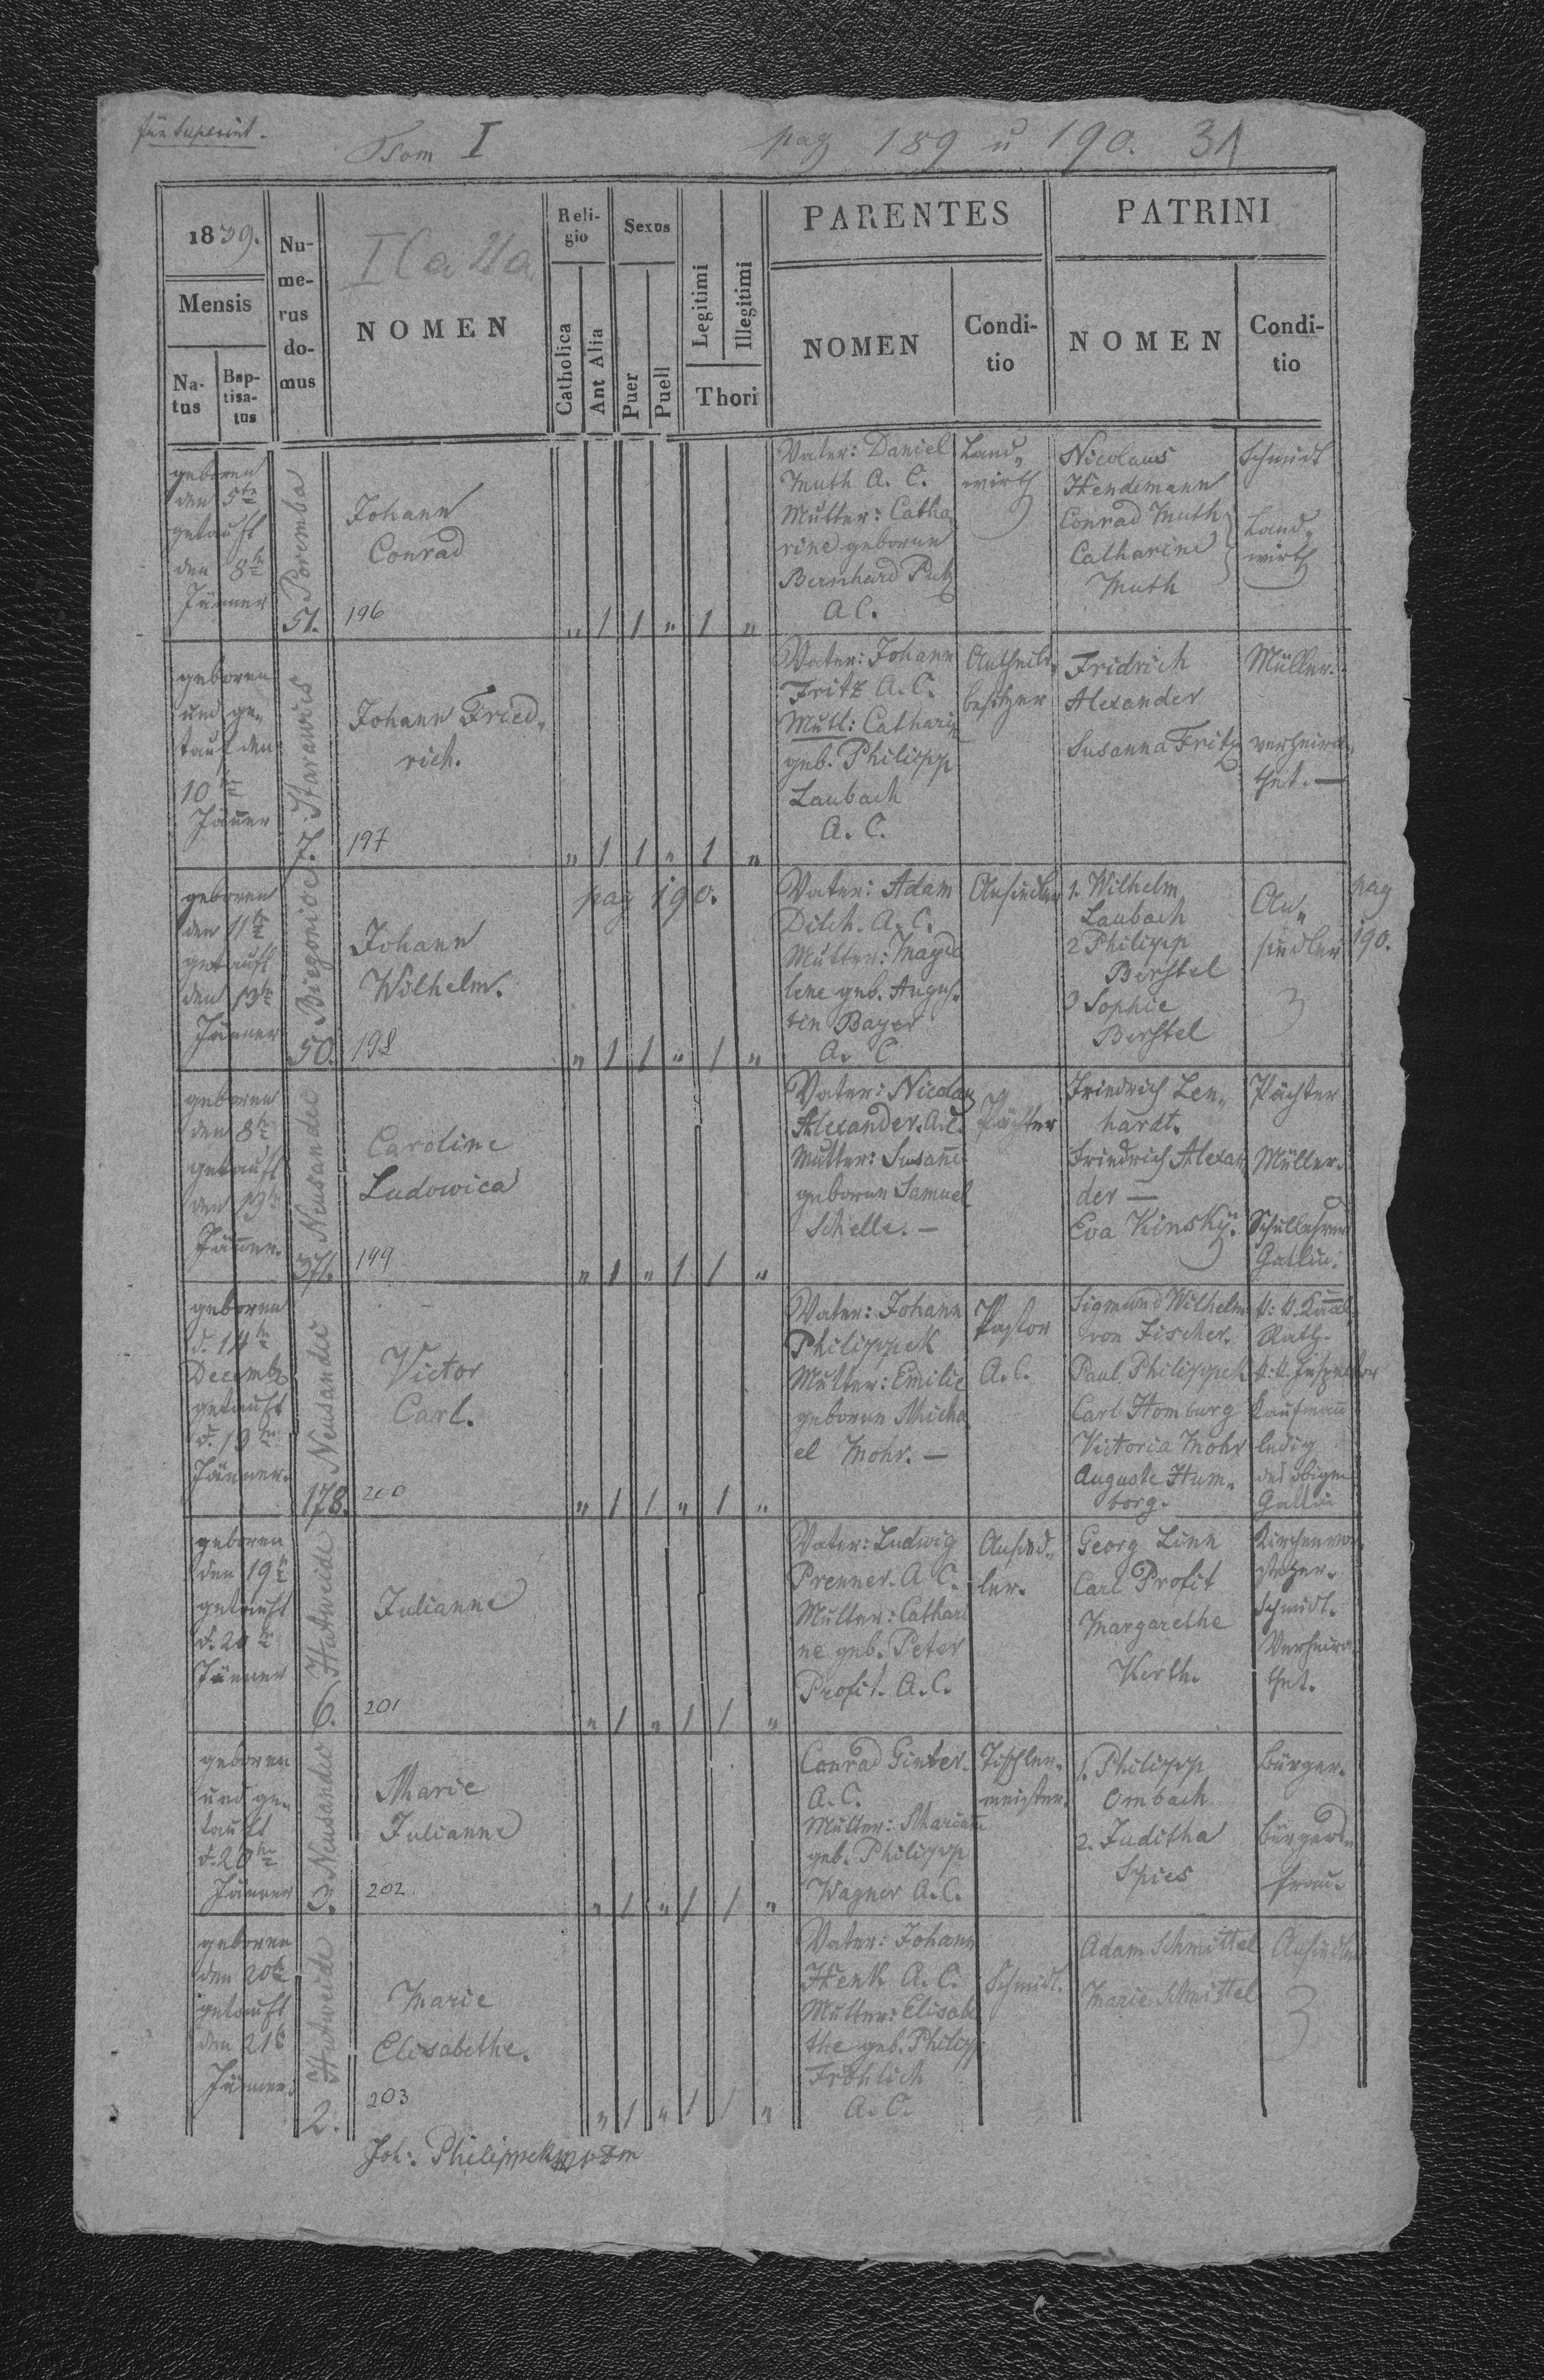 Tom I pag 189 u 190. 31
1839.
Mensis
Na-
tus
Bap-
tisa-
tus
Nu-
me-
rus
do-
mus
NOMEN
Reli-
gio
Catholica
Aut Alia
Sexus
Puer
Puell
Legitimi
Illegitimi
Thori
PARENTES
NOMEN
Condi-
tio
PATRINI
NOMEN
Condi-
tio
geboren
den 5te
getauft
den 8te
Jänner
Poremba
51.
Johann
Conrad
196
„ 1 1 „ 1 „
Vater: Daniel
Muth A. C.
Mutter: Catha
rine geborne
Bernhard Putz
A C.
Land„
wirth
Nicolaus
Hendemann
Conrad Muth
Catharine
Muth
Schmidt
Land„
wirth
geboren
und ge„
tauf den
10te
Jänner
7. Starawies
Johann Fried„
rich.
197
„ 1 1 „ 1 „
Vater: Johann
Fritz A. C.
Mutt: Catharin
geb. Philipp
Laubach
A. C.
Antheils„
besitzer
Fridrich
Alexander
Susanna Fritz
Müller.
verheira„
thet. —
geboren
den 11te
getauft
den 13te
Jänner
Biegonice
50.
Johann
Wilhelm.
198
pag 190.
„ 1 1 „ 1 „
Vater: Adam
Dilch. A. C.
Mutter: Magda
lene geb. Augus„
tin Bayer
A. C
Ansiedler
1. Wilhelm
Laubach
2 Philipp
Berstel
3 Sophie
Berstel
An„
siedler
pag
190.
geboren
den 8te
getauft
den 13te
Jänner.
Neusandec
371.
Caroline
Ludowica
199
„ 1 „ 1 1 „
Vater: Nicolau
Alexander. A. C.
Mutter: Susane
geborne Samuel
Schelle. —
Pächter
Friedrich Len„
hardt.
Friedrich Alexan
der —
Eva Kinsky.
Pächter
Müller.
Schullehrers
Gattin.
geboren
d. 14te
Decemb
getauft
d. 13te
Jänner.
Neusandec
178.
Victor
Carl.
200
„ 1 1 „ 1 „
Vater: Johann
Philippek
Mutter: Emilie
geborne Micha
el Mohr. —
Pastor
A. C.
Sigmund Wilhelm
von Fischer.
Paul Philippek
Carl Homburg
Victoria Mohr
Auguste Hum„
borg.
Rath.
k. k. Inspector
Kaufmann
ledig
des obigen
Gattin
geboren
den 19te
getauft
d. 20te
Jänner
Hutweide
6.
Julianne
201
„ 1 „ 1 1 „
Vater: Ludwig
Prenner. A C.
Mutter: Cathari
ne geb. Peter
Profit. A. C.
Ansied„
ler.
Georg Linn
Carl Profit
Margarethe
Kerth.
Kirchenvor„
steher.
Schmidt.
Verheira
thet.
geboren
und ge„
tauft
d. 20te
Jänner
Neusandec
3.
Marie
Julianne
202
„ 1 „ 1 1 „
Conrad Ginter.
A. C.
Mutter: Mariane
geb. Philipp
Wagner A. C.
Tischler„
meister.
1. Philipp
Ombach
2. Juditha
Spies
Bürger.
Bürgers„
frau.
geboren
den 20te
getauft
den 21te
Jänner.
Hutweide
2.
Marie
Elisabethe.
203
„ 1 „ 1 1 „
Vater: Johann
Henk A. C.
Mutter: Elisabe
the geb. Philipp
Fröhlich
A. C.
Schmidt.
Adam Schmittel
Marie Schmittel
Ansiedler
Joh: Philippek